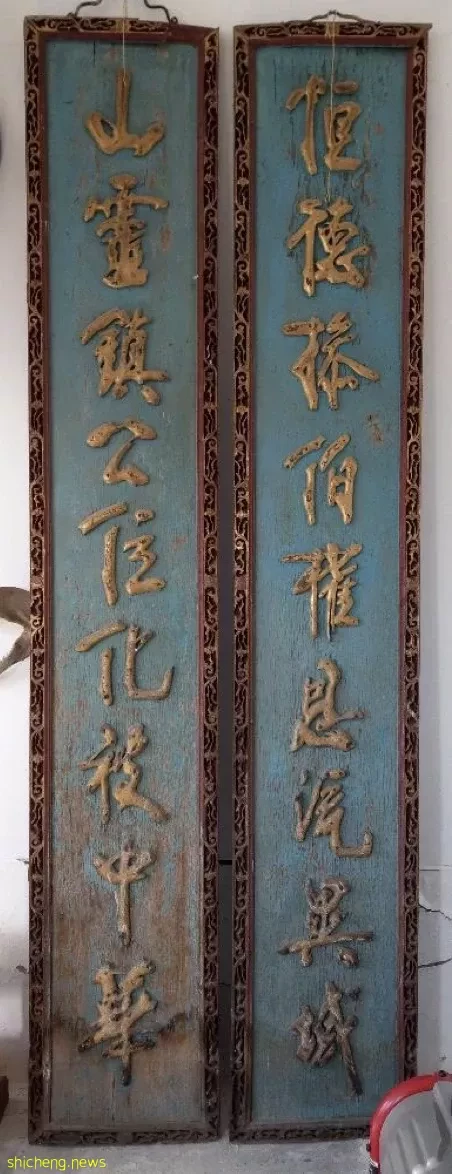 恒德操伯權恩流異域
山靈鎮公位化被中華
shicheng.news